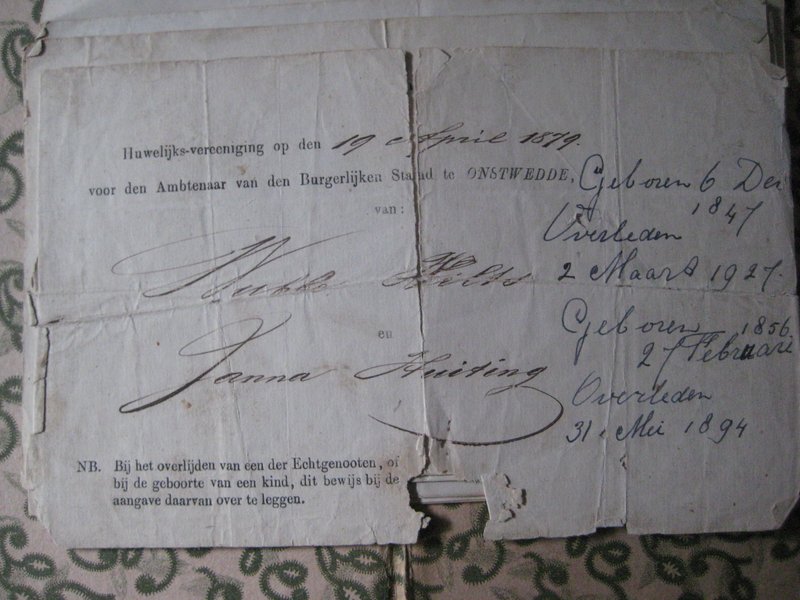 Huwelijks-vereeniging op den 19 April 1879.
voor den Ambtenaar van den Burgerlijken Stand te ONSTWEDDE,
van:
Hilts
en
Janna Huiting
NB. Bij het overlijden van een der Echtgenooten, of
bij de geboorte van een kind, dit bewijs bij de
aangave daarvan over te leggen.
Geboren 6 Dec
1847
Overleden
2 Maart 1927.
Geboren 1856
27 Februarie
Overleden
31 Mei 1894